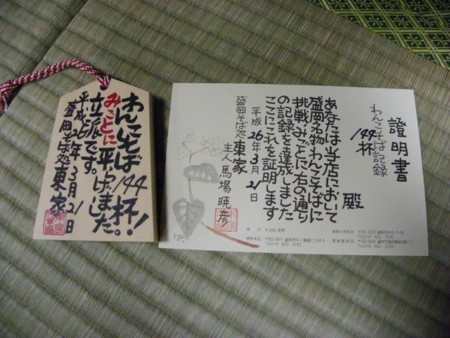 わんこそば144杯！
みごとに平らげました。
立派です。
平成26年3月21日
盛岡そば処東家
證明書
わんこそば記録
144杯
殿
あなたは当店において
盛岡名物わんこそばに
挑戦みごとに右の通り
の記録を達成しました
ここにこれを証明します
平成26年3月21日
盛岡そば処東家
主人馬場暁彦